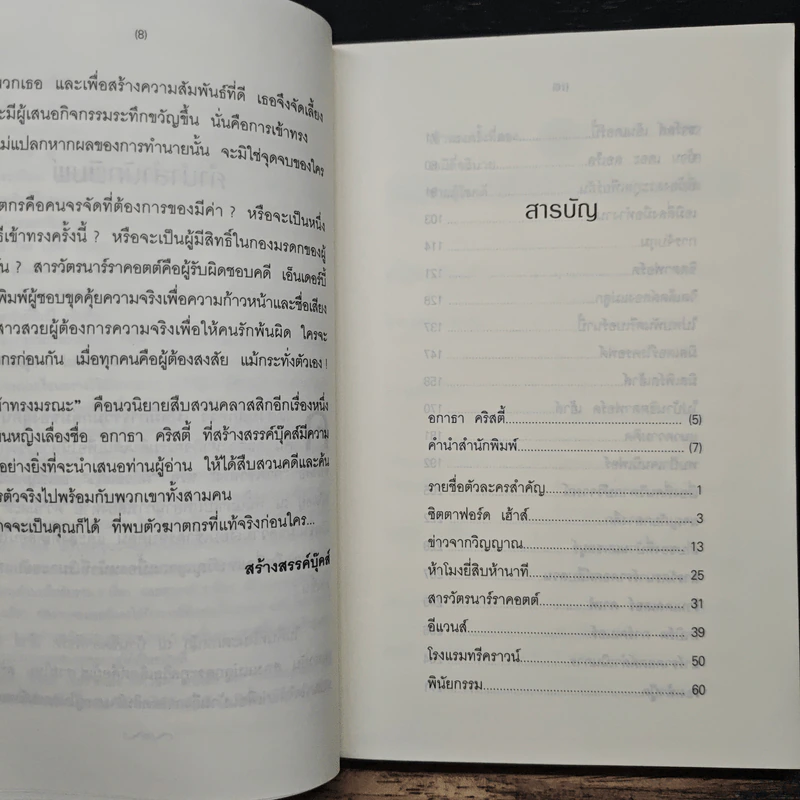 (8)
พวกเธอ และเพื่อสร้างความสัมพันธ์ที่ดี เธอจึงจัดเลี้ยง
จะมีผู้เสนอกิจกรรมระทึกขวัญขึ้น นั่นคือการเข้าทรง
ไม่แปลกหากผลของการทำนายนั้น จะมิใช่จุดจบของใคร
ตกรคือคนจรจัดที่ต้องการของมีค่า ? หรือจะเป็นหนึ่ง
ธีเข้าทรงครั้งนี้ ? หรือจะเป็นผู้มีสิทธิ์ในกองมรดกของผู้
ัน ? สารวัตรนาร์ราคอตต์คือผู้รับผิดชอบคดี เอ็นเดอร์บี้
พิมพ์ผู้ชอบขุดคุ้ยความจริงเพื่อความก้าวหน้าและชื่อเสียง
สาวสวยผู้ต้องการความจริงเพื่อให้คนรักพ้นผิด ใครจะ
กรก่อนกัน เมื่อทุกคนคือผู้ต้องสงสัย แม้กระทั่งตัวเอง !
ข้าทรงมรณะ” คือนวนิยายสืบสวนคลาสสิกอีกเรื่องหนึ่ง
ยนหญิงเลื่องชื่อ อกาธา คริสตี้ ที่สร้างสรรค์บุ๊คส์มีความ
อย่างยิ่งที่จะนำเสนอท่านผู้อ่าน ให้ได้สืบสวนคดีและค้น
รตัวจริงไปพร้อมกับพวกเขาทั้งสามคน
าจจะเป็นคุณก็ได้ ที่พบตัวฆาตกรที่แท้จริงก่อนใคร...
สร้างสรรค์บุ๊คส์
สารบัญ
อกาธา คริสตี้ (5)
คำนำสำนักพิมพ์ (7)
รายชื่อตัวละครสำคัญ 1
ซิตตาฟอร์ด เฮ้าส์ 3
ข่าวจากวิญญาณ 13
ห้าโมงยี่สิบห้านาที 25
สารวัตรนาร์ราคอตต์ 31
อีแวนส์ 39
โรงแรมทรีคราวน์ 50
พินัยกรรม 60